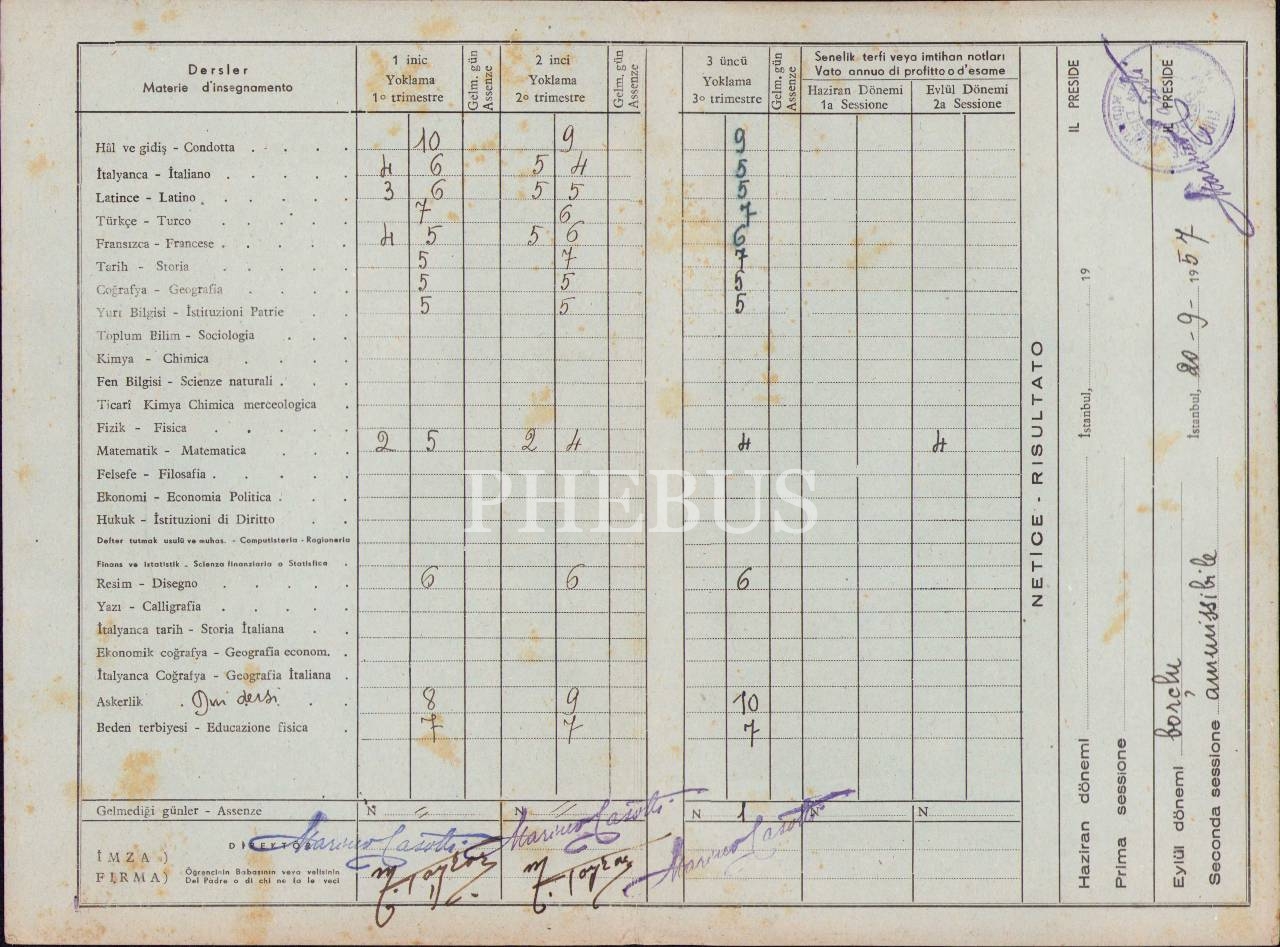 Dersler
Materie d'insegnamento
1 inic
Yoklama
1º trimestre
Gelm. gün
Assenze
2 inci
Yoklama
2º trimestre
Gelm. gün
Assenze
3 üncü
Yoklama
3º trimestre
Gelm. gün
Assenze
Senelik terfi veya imtihan notları
Vato annuo di profitto o d'esame
Haziran Dönemi
1a Sessione
Eylûl Dönemi
2a Sessione
Hâl ve gidiş - Condotta . . . . 10 9 9
İtalyanca - İtaliano . . . . . 4 6 5 4 5
Latince - Latino . . . . . 3 6 5 5 5
Türkçe - Turco . . . . . 7 6 7
Fransızca - Francese . . . . . 4 5 5 6 6
Tarih - Storia . . . . . 5 7 7
Coğrafya - Geografia . . . . 5 5 5
Yurt Bilgisi - İstituzioni Patrie . . 5 5 5
Toplum Bilim - Sociologia . . .
Kimya - Chimica . . . .
Fen Bilgisi - Scienze naturali . . .
Ticarî Kimya Chimica merceologica .
Fizik - Fisica . . . . .
Matematik - Matematica . . . 2 5 2 4 4 4
Felsefe - Filosofia . . . . .
Ekonomi - Economia Politica . . .
Hukuk - İstituzioni di Diritto . .
Defter tutmak usulü ve muhas. - Computisteria - Ragioneria
Finans ve istatistik - Scienza finanziaria o Statistica .
Resim - Disegno . . . . 6 6 6
Yazı - Calligrafia . . . .
İtalyanca tarih - Storia İtaliana . .
Ekonomik coğrafya - Geografia econom. .
İtalyanca Coğrafya - Geografia İtaliana .
Askerlik . Dini dersi . . 8 9 10
Beden terbiyesi - Educazione fisica . 7 7 7
Gelmediği günler - Assenze N = N = N 1 N N
DİREKTÖR Marino Casotti Marino Casotti Marino Casotti
İMZA )
FIRMA)
Öğrencinin Babasının veya velisinin
Del Padre o di chi ne fa le veci
NETİCE - RISULTATO
Haziran dönemi İstanbul, 19 IL PRESIDE
Prima sessione
Eylûl dönemi borçlu IL PRESIDE
Seconda sessione ammissibile İstanbul, 20-9-1957
PHEBUS